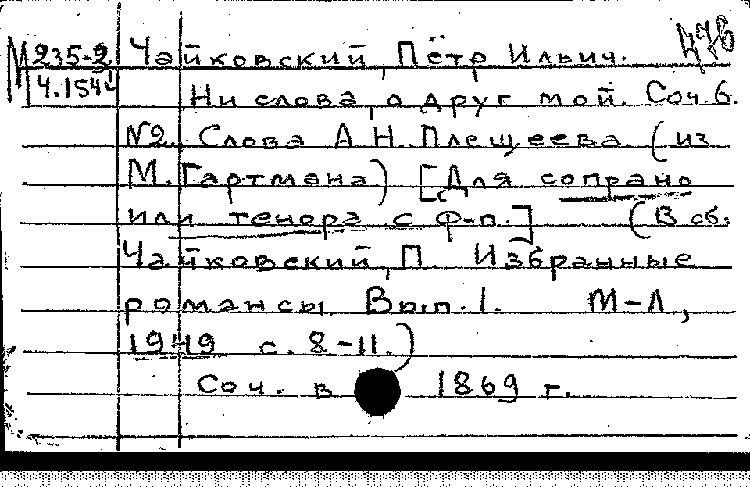 М 235-2 Чайковский, Пётр Ильич. 476
4.154 Ни слова, о друг мой. Соч 6.
№2. Слова А Н Плещеева (из
М. Гартмана) [Для сопрано
или тенора с ф-п.] (В сб.
Чайковский, П. Избранные
романсы Вып. 1. М-Л,
1949 с. 8-11.)
Соч. в 1869 г.